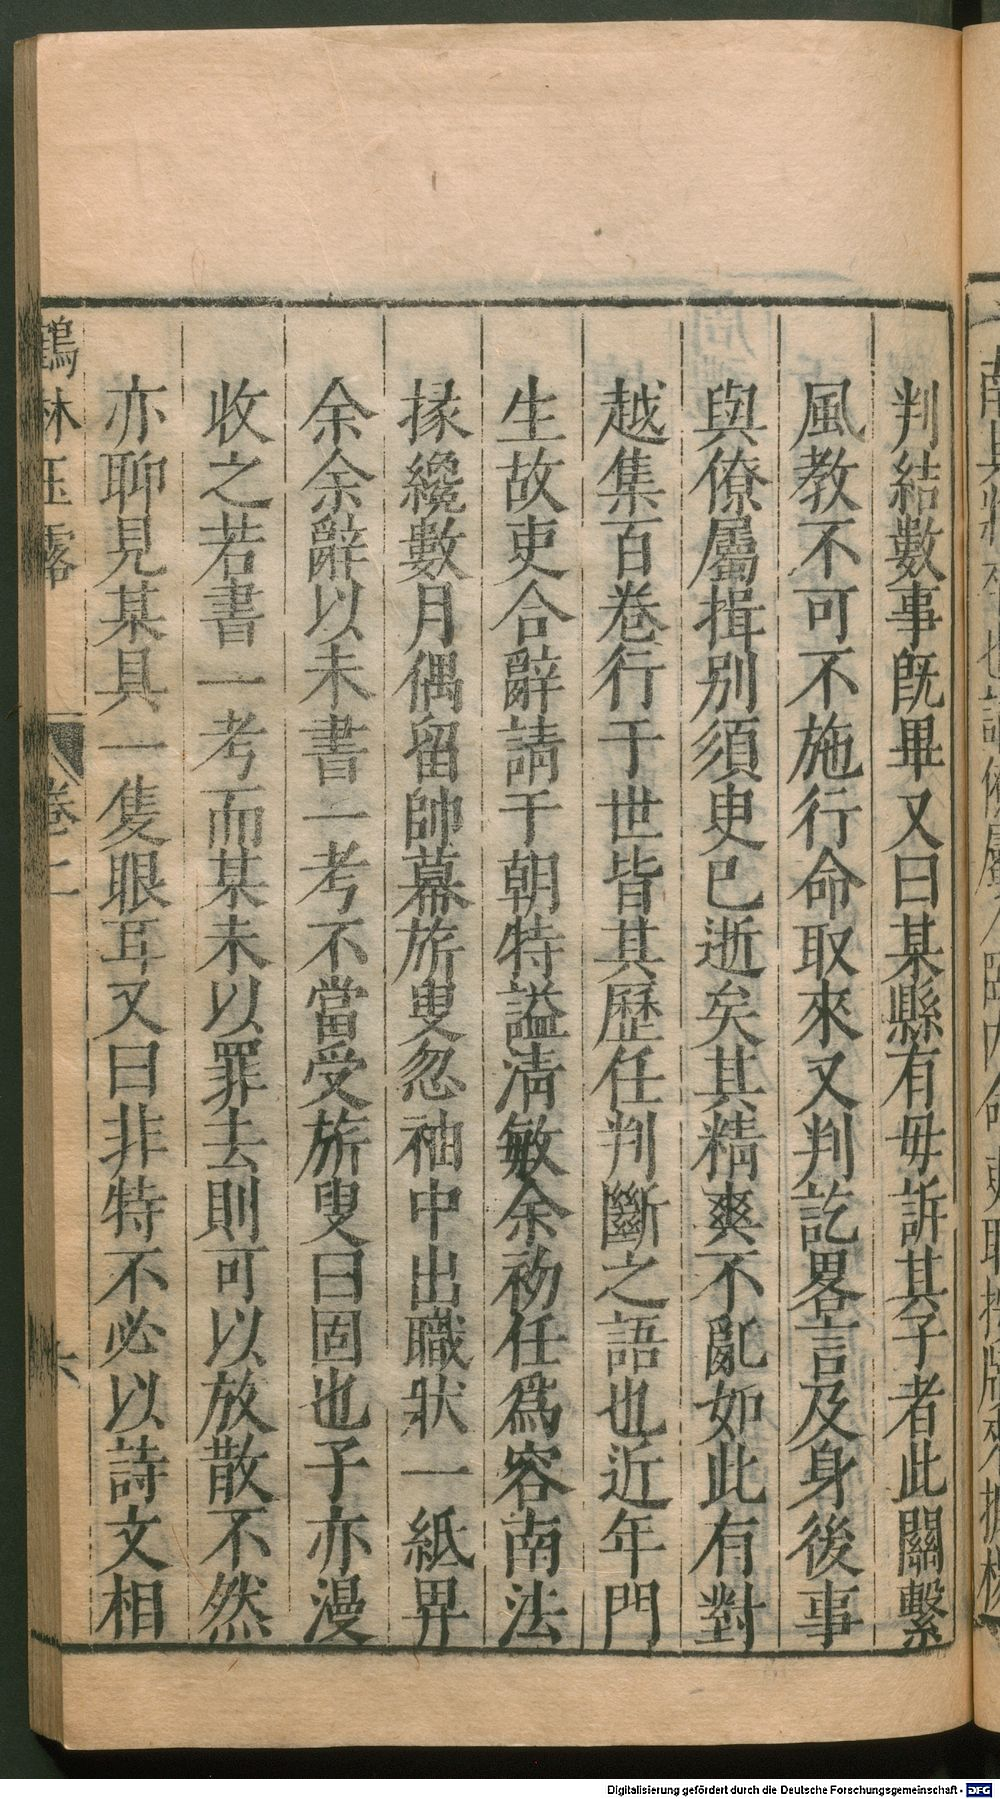 判結數事旣畢又曰某縣有毋訴其子者此關繫
風教不可不施行命取來又判訖畧言及身後事
與僚屬揖别須臾已逝矣其精爽不亂如此有對
越集百卷行于世皆其歷任判斷之語也近年門
生故吏合辭請于朝特謚清敏余初任爲容南法
掾纔數月偶留帥幕旅叟忽袖中出職狀一紙畀
余余辭以未書一考不當受旅叟曰固也子亦漫
收之若書一考而某未以罪去則可以放散不然
亦聊見某具一隻眼耳又曰非特不必以詩文相
鶴林玉露 卷二 六
Digitalisierung gefördert durch die Deutsche Forschungsgemeinschaft - DFG